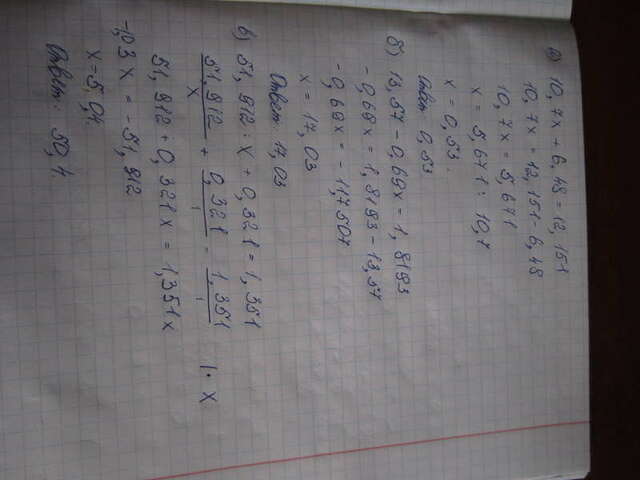 а) 10,7x + 6,48 = 12,151
10,7x = 12,151 - 6,48
10,7x = 5,671
x = 5,671 : 10,7
x = 0,53.
Ответ: 0,53
б) 13,57 - 0,69x = 1,8193
-0,69x = 1,8193 - 13,57
-0,69x = -11,7507
x = 17,03
Ответ: 17,03
в) 51,912 : x + 0,321 = 1,351
51,912/x + 0,321/1 = 1,351/1 | · x
51,912 + 0,321x = 1,351x
-1,03x = -51,912
x = 5,04.
Ответ: 50,4.